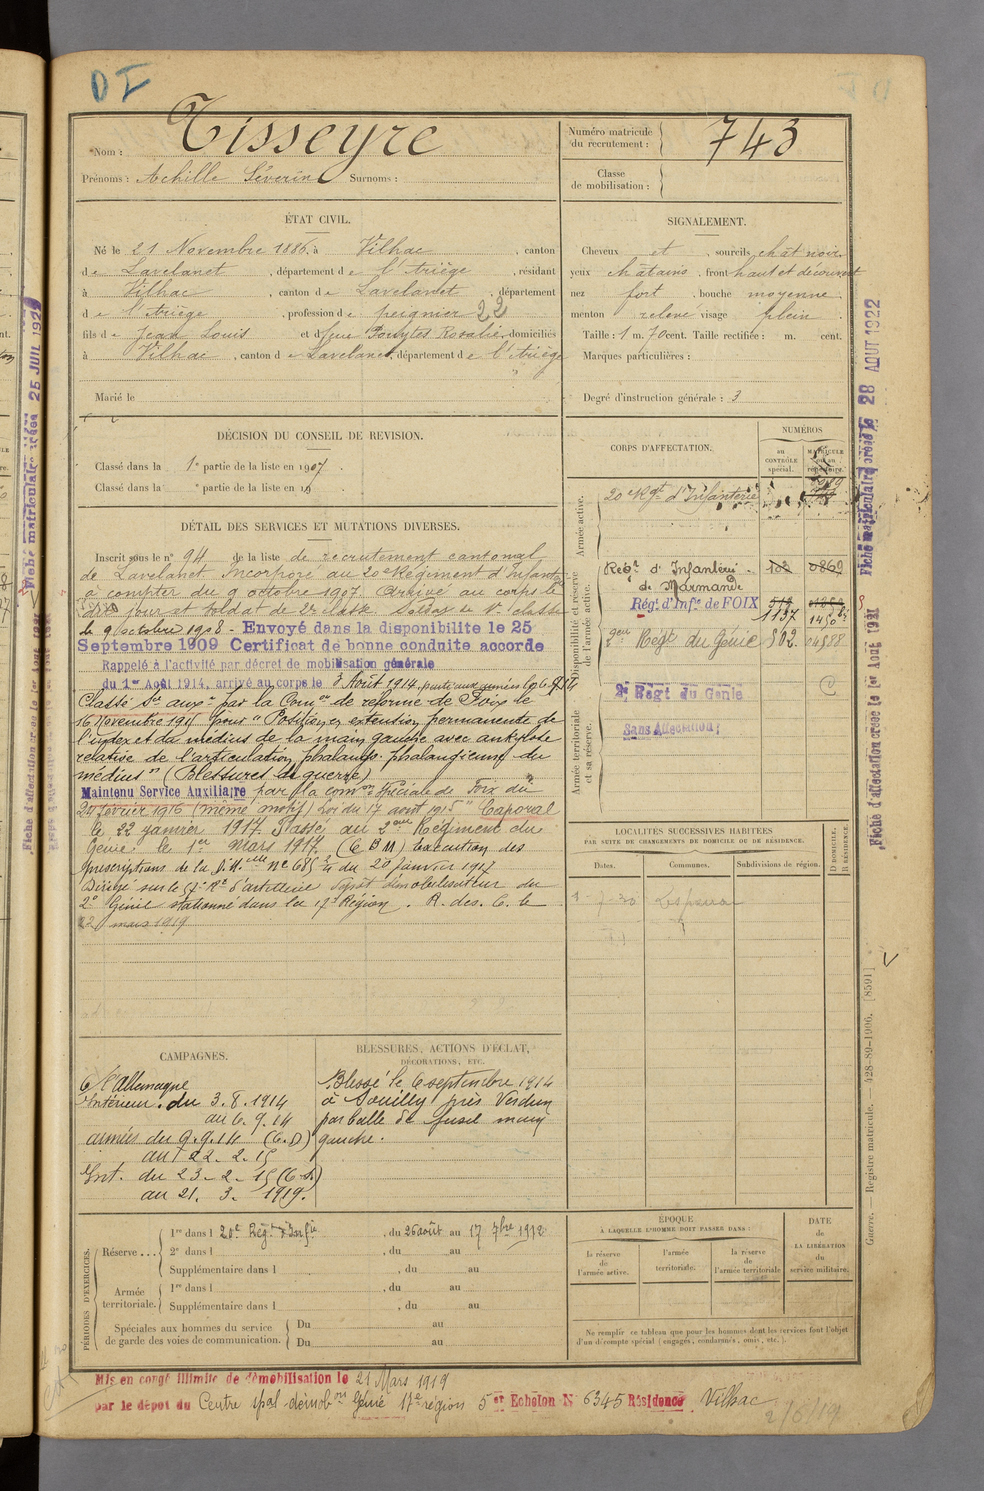 D I
Nom : Tisseyre
Prénoms : Achille Séverin Surnoms :
Numéro matricule du recrutement : 743
Classe de mobilisation :
ÉTAT CIVIL.
Né le 21 Novembre 1886, à Vilhac, canton
de Lavelanet, département de l'Ariège, résidant
à Vilhac, canton de Lavelanet, département
de l'Ariège, profession de peignier 22
fils de Jean Louis et d feue Pouytes Rosalie domiciliés
à Vilhac, canton de Lavelanet, département de l'Ariège
Marié le
SIGNALEMENT.
Cheveux et, sourcils chât noir
yeux châtains, front haut et découvert
nez fort, bouche moyenne
menton relevé visage plein
Taille : 1 m. 70 cent. Taille rectifiée : m. cent.
Marques particulières :
Degré d'instruction générale : 3
DÉCISION DU CONSEIL DE REVISION.
Classé dans la 1e partie de la liste en 1907.
Classé dans la e partie de la liste en 19
DÉTAIL DES SERVICES ET MUTATIONS DIVERSES.
Inscrit sous le no 94 de la liste de recrutement cantonal
de Lavelanet. Incorporé au 20e Régiment d'Infanterie
à compter du 9 octobre 1907. Arrivé au corps le
dit jour et soldat de 2e classe. Soldat de 1e classe
le 9 octobre 1908 - Envoyé dans la disponibilite le 25
Septembre 1909 Certificat de bonne conduite accorde
Rappelé à l'activité par décret de mobilisation générale
du 1er Août 1914, arrivé au corps le 3 Août 1914, parti aux armées le 6.9.14
Classé Sce auxre par la Comon de réforme de Foix le
16 Novembre 1914 pour " Position en extension permanente de
l'index et du médius de la main gauche avec ankylose
relative de l'articulation phalango phalangienne du
médius " (Blessures de guerre)
Maintenu Service Auxiliaire par la comon spéciale de Foix du
24 février 1916 (même motif) Loi du 17 août 1915" Caporal
le 22 janvier 1917. Passé au 2eme Régiment du
Génie. le 1er Mars 1917. (C B M) Exécution des
prescriptions de la D.M.elle no 685 du 20 Janvier 1917
Dirigé sur le 57e Rt d'artillerie Dépôt démobilisateur du
2e Génie stationné dans la 17e Région. R. des. C. le
22 mars 1919
CORPS D'AFFECTATION.
NUMÉROS
au CONTRÔLE spécial.
MATRICULE ou au répertoire.
Armée active.
20e Rgt d'Infanterie
Disponibilité et réserve de l'armée active.
Regt d'Infanterie de Marmande 102 0869
Régt d'Infie de FOIX 1137 1450
2eme Regt du Génie 802 04588
Armée territoriale et sa réserve.
2e Regt du Genie C
Sans Affectation
LOCALITÉS SUCCESSIVES HABITÉES
PAR SUITE DE CHANGEMENTS DE DOMICILE OU DE RÉSIDENCE.
Dates. Communes. Subdivisions de région. D DOMICILE. R RÉSIDENCE.
CAMPAGNES.
C/ l'Allemagne
Intérieur. du 3.8.1914
au 6.9.14
armées du 9.9.14 (C.D)
au 22.2.15
Int. du 23-2-15 (C.S)
au 21.3.1919.
BLESSURES, ACTIONS D'ÉCLAT,
DÉCORATIONS, ETC.
Blessé le 6 septembre 1914
à Souilly près Verdun
par balle de fusil main
gauche.
PÉRIODES D'EXERCICES.
Réserve... 1re dans l 20e Régt d'Infie, du 26 août au 17 7bre 1912
2e dans l, du au
Supplémentaire dans l, du au
Armée territoriale. 1re dans l, du au
Supplémentaire dans l, du au
Spéciales aux hommes du service de garde des voies de communication. Du au
Du au
ÉPOQUE
À LAQUELLE L'HOMME DOIT PASSER DANS :
la réserve de l'armée active.
l'armée territoriale.
la réserve de l'armée territoriale
DATE de LA LIBÉRATION du service militaire.
Ne remplir ce tableau que pour les hommes dont les services font l'objet
d'un décompte spécial (engagés, condamnés, omis, etc.)
Mis en congé illimité de démobilisation le 21 Mars 1919
par le dépôt du Centre spal démobon Génie 17e région 5er Echelon N 6345 Résidence Vilhac
2/6/19
Fiche matriculaire créée le 28 AOUT 1922
Fiche d'affectation créée le 1er Août 1921
Guerre. — Registre matricule. — 428-89-1906. [8591]
25 JUIL 1922